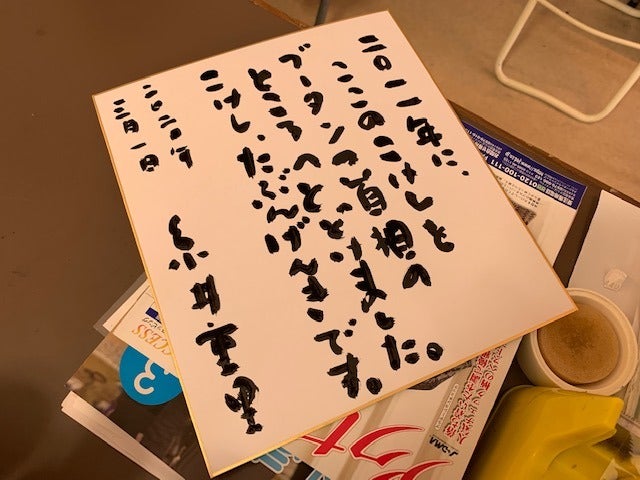 二〇一一年に、
ここのこけしを
ブータンの首相の
ところへとどけました。
こけし、たぶんげんきです。
二〇二〇年
三月一日
糸井重里
0120-100-111
ACCESS
3
J-DMA